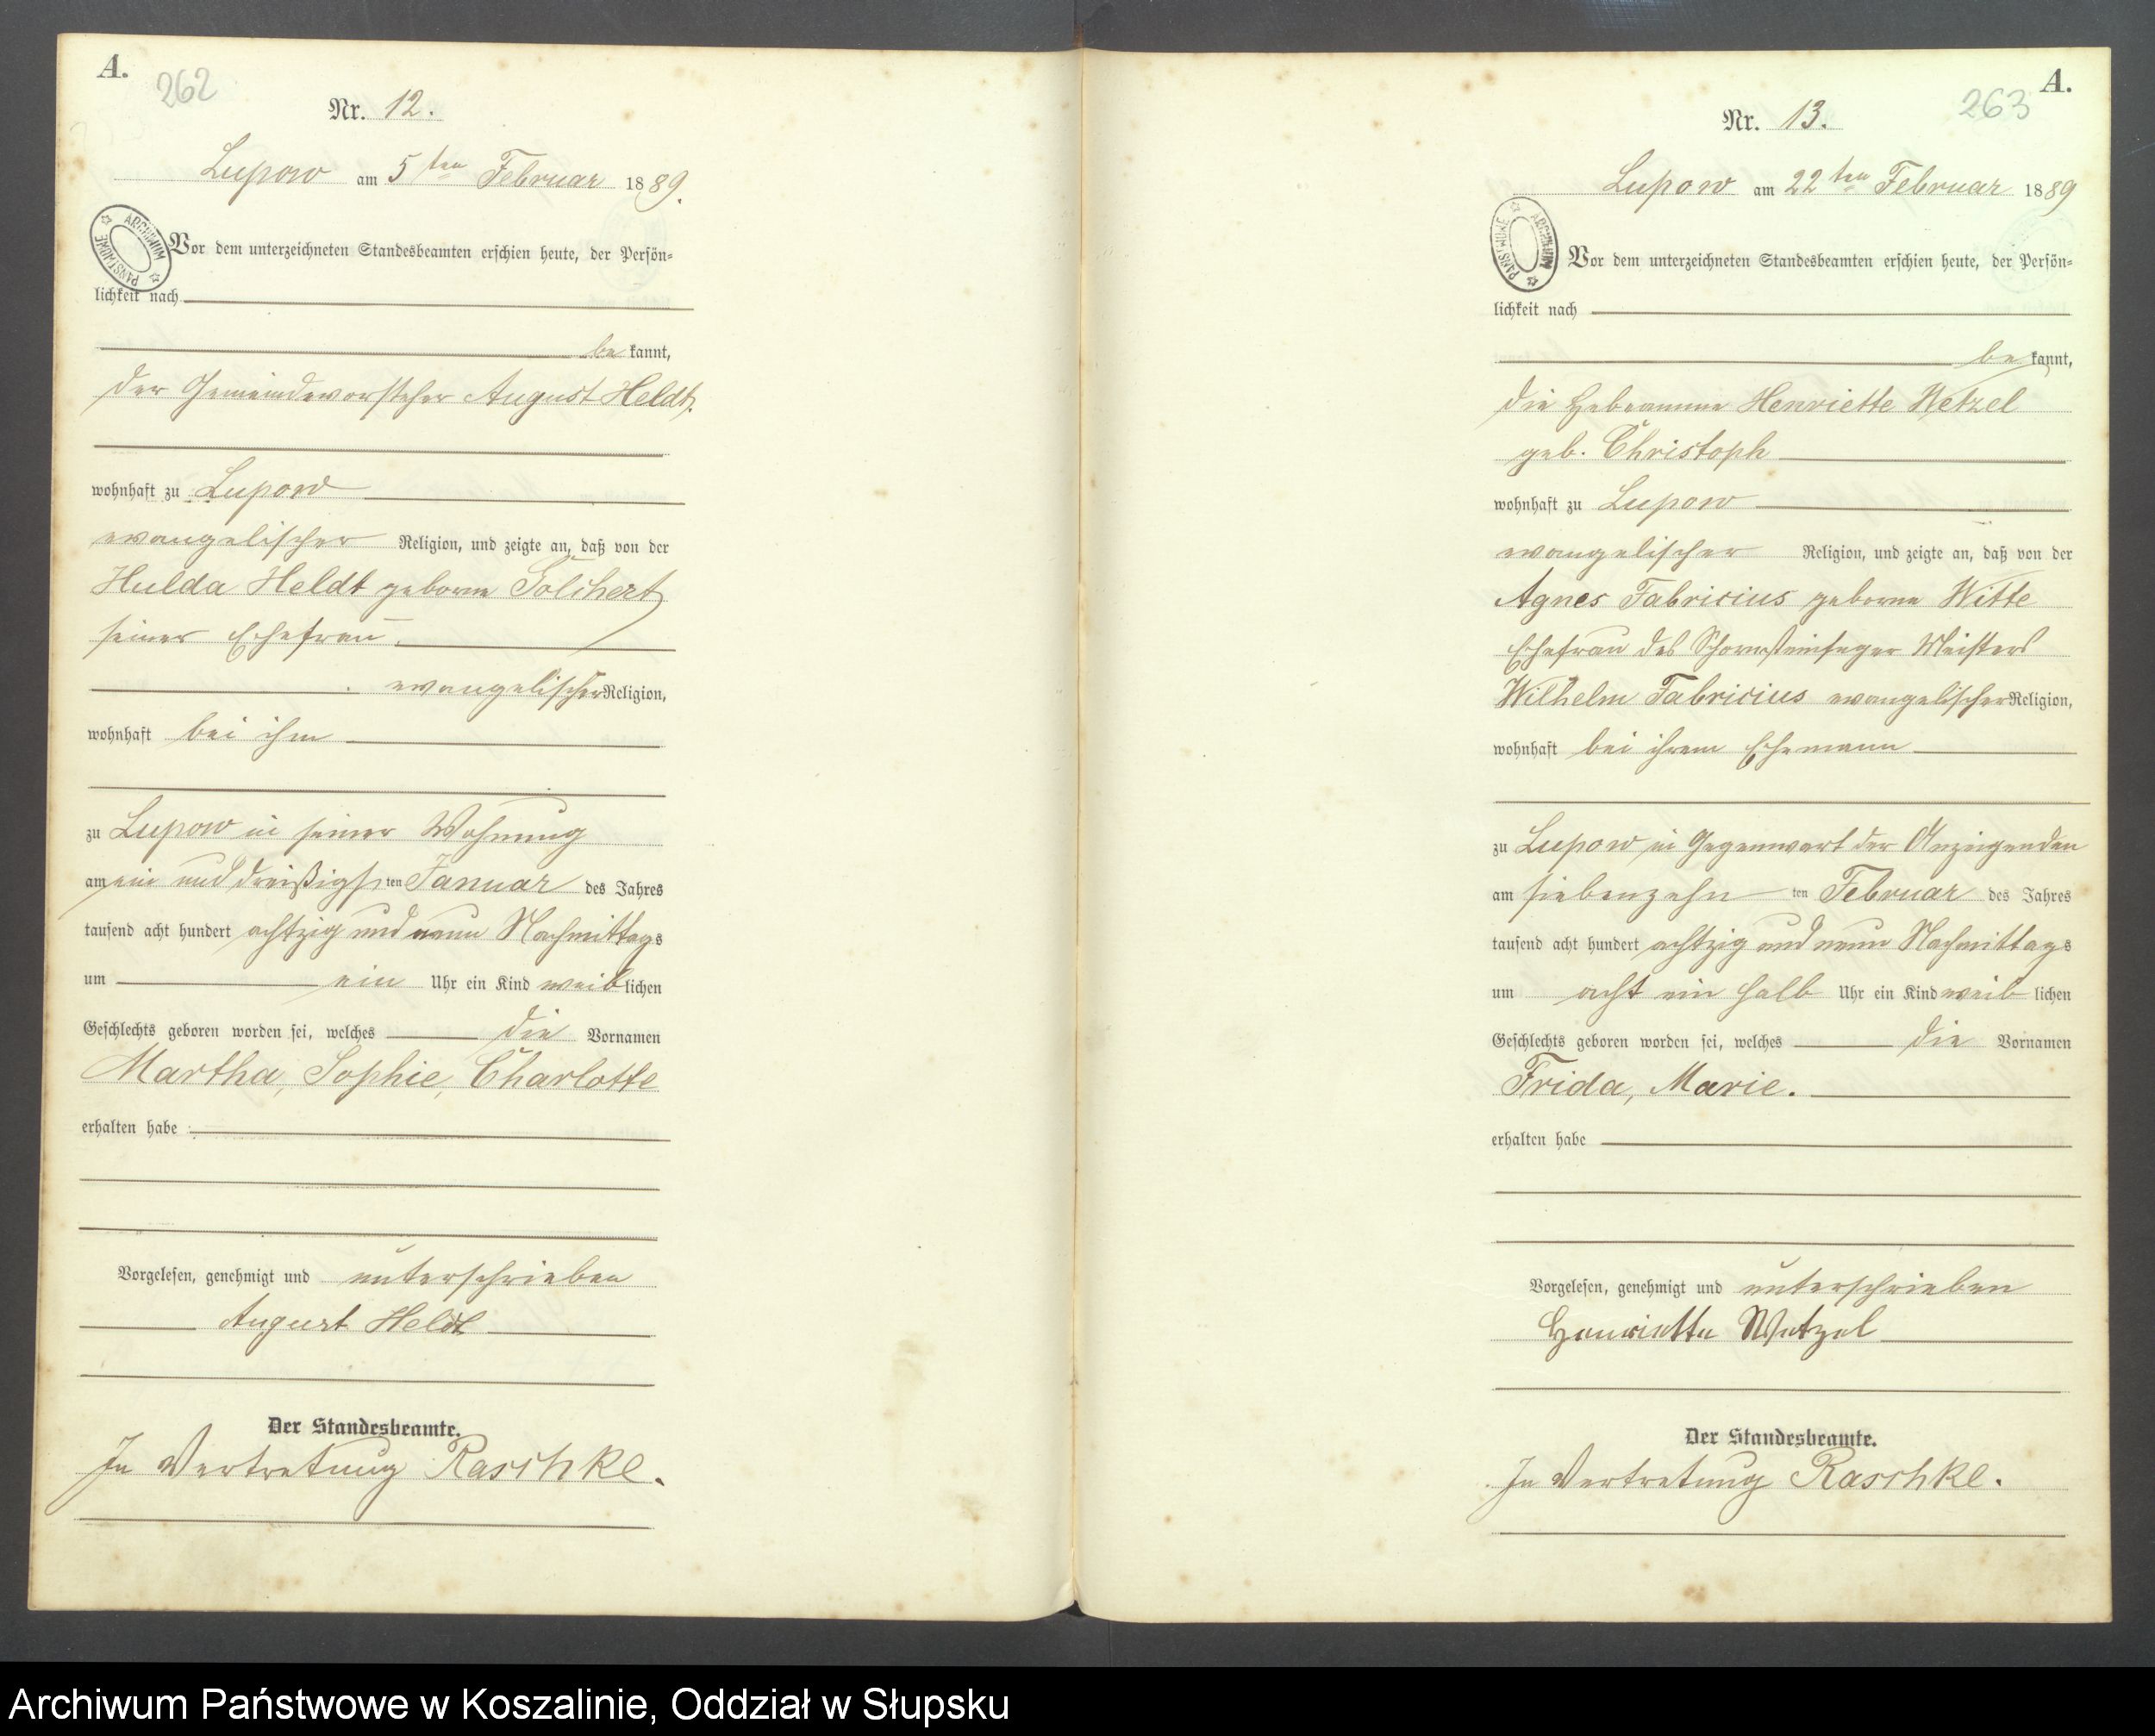 A.
262
Nr. 12.
Lupow am 5ten Februar 1889.
ARCHIWUM PAŃSTWOWE
Vor dem unterzeichneten Standesbeamten erschien heute, der Persön-
lichkeit nach
be kannt,
der Gemeindevorsteher August Heldt,
wohnhaft zu Lupow
evangelischer Religion, und zeigte an, daß von der
Hulda Heldt geborne Solchert
seiner Ehefrau,
evangelischer Religion,
wohnhaft bei ihm
zu Lupow in seiner Wohnung
am ein und dreißigsten Januar des Jahres
tausend acht hundert achtzig und neun Nachmittags
um ein Uhr ein Kind weiblichen
Geschlechts geboren worden sei, welches die Vornamen
Martha, Sophie, Charlotte
erhalten habe
Vorgelesen, genehmigt und unterschrieben
August Heldt
Der Standesbeamte.
In Vertretung Raschke.
A.
263
Nr. 13.
Lupow am 22ten Februar 1889
ARCHIWUM PAŃSTWOWE
Vor dem unterzeichneten Standesbeamten erschien heute, der Persön-
lichkeit nach
be kannt,
die Hebeamme Henriette Wetzel
geb. Christoph
wohnhaft zu Lupow
evangelischer Religion, und zeigte an, daß von der
Agnes Fabricius geborne Witte
Ehefrau des Schornsteinfeger Meisters
Wilhelm Fabricius evangelischer Religion,
wohnhaft bei ihrem Ehemann
zu Lupow in Gegenwart der Anzeigenden
am siebenzehn ten Februar des Jahres
tausend acht hundert achtzig und neun Nachmittags
um acht ein halb Uhr ein Kind weiblichen
Geschlechts geboren worden sei, welches die Vornamen
Frida, Marie.
erhalten habe
Vorgelesen, genehmigt und unterschrieben
Henriette Wetzel
Der Standesbeamte.
In Vertretung Raschke.
Archiwum Państwowe w Koszalinie, Oddział w Słupsku